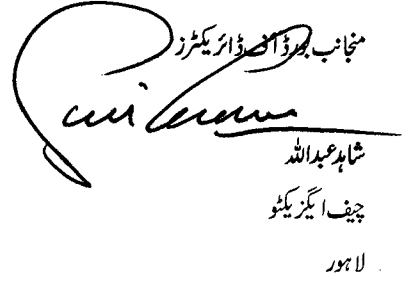 منجانب بورڈ آف ڈائریکٹرز
شاہد عبداللہ
چیف ایگزیکٹو
لاہور